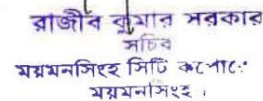 রাজীব কুমার সরকার
সচিব
ময়মনসিংহ সিটি কর্পোঃ
ময়মনসিংহ।